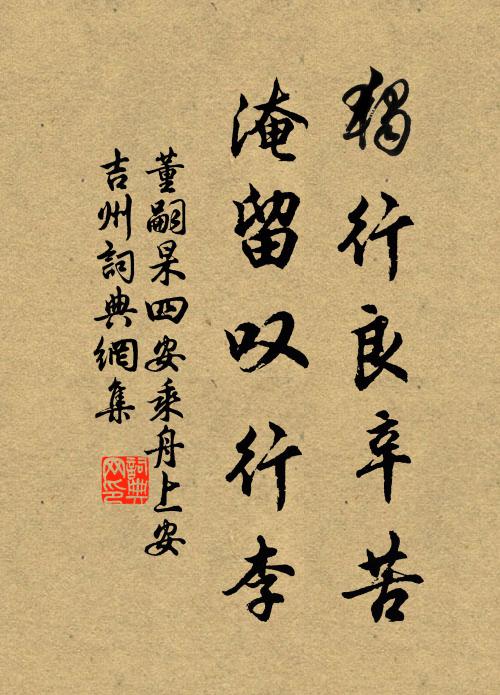 獨行良辛苦
淹留叹行李
董嗣杲四安乘舟上安
吉州詞典網集
詞典网印